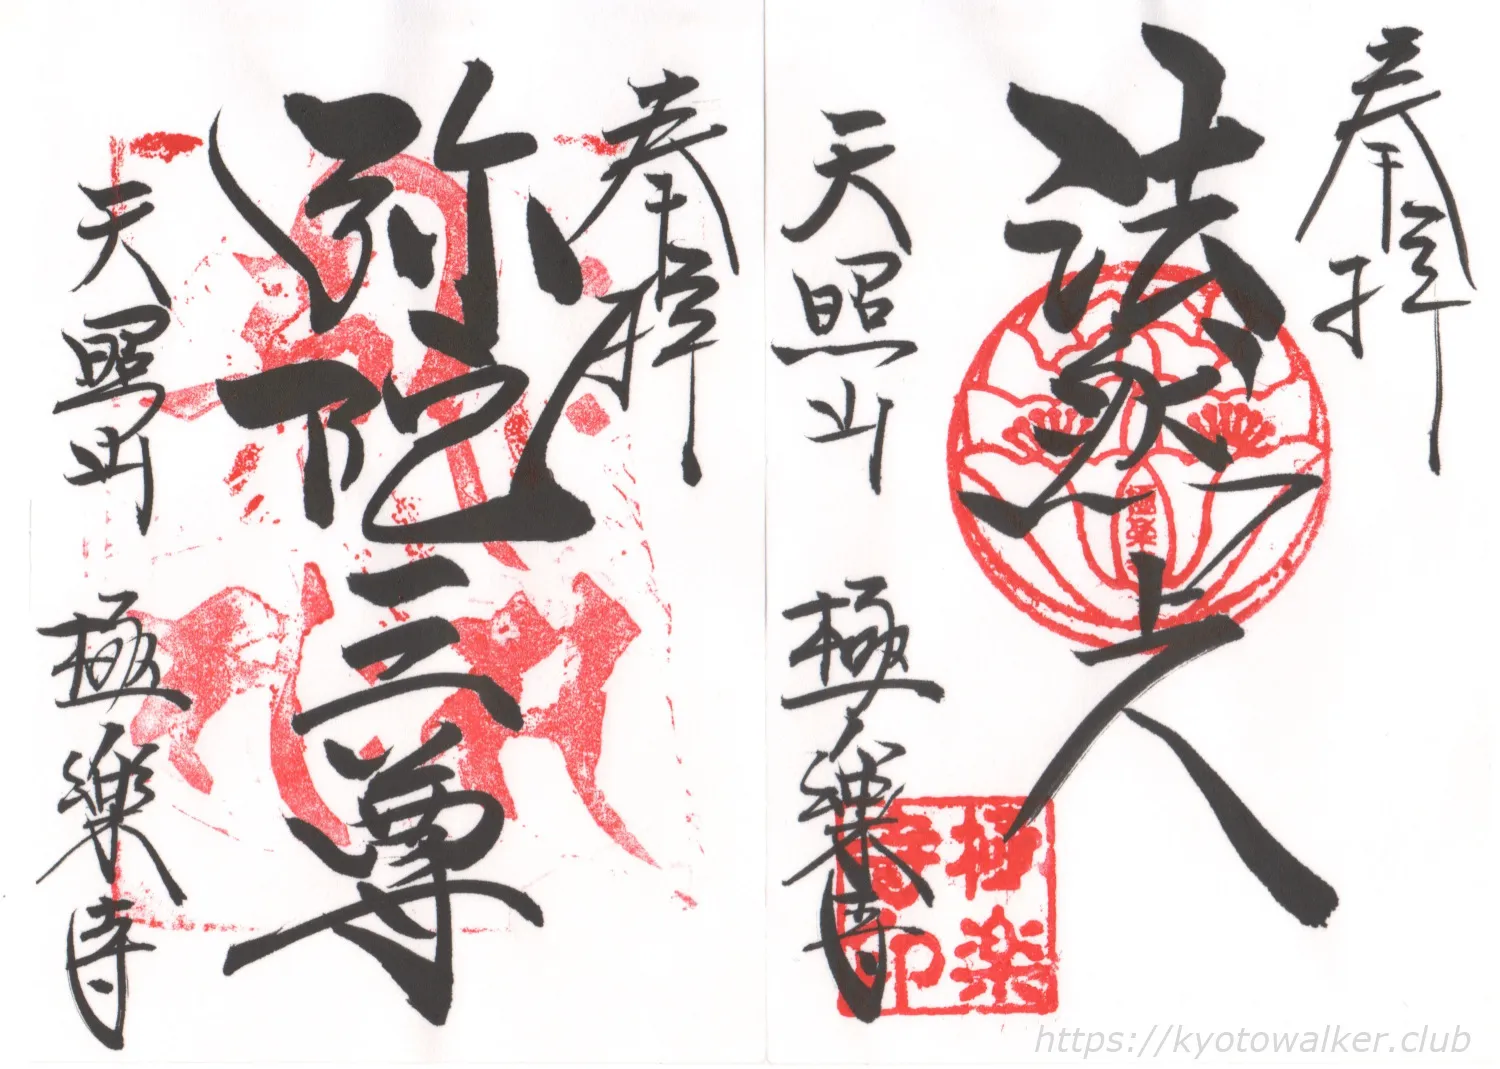 奉拝
法然上人
天照山 極樂寺
極楽
極楽寺印
奉拝
弥陀三尊
天照山 極樂寺
https://kyotowalker.club